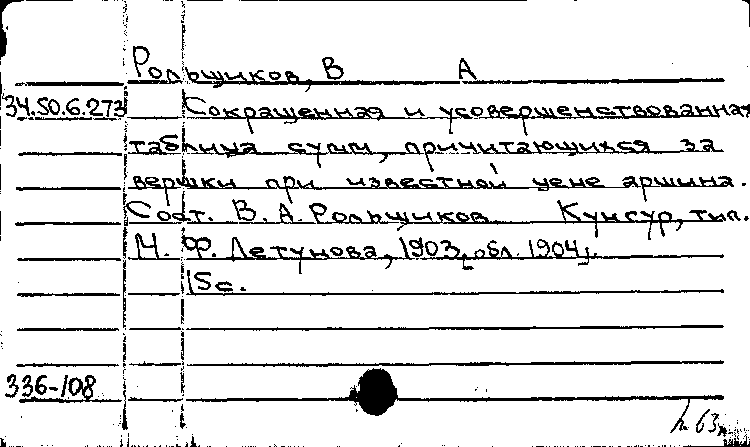 Рольщиков, В А
34.50.6.273 Сокращенная и усовершенствованная
таблица сумм, причитающихся за
вершки при известной цене аршина.
Сост. В. А. Рольщиков. Кунгур, тип.
М. Ф. Летунова, 1903, [обл. 1904].
15с.
336-108